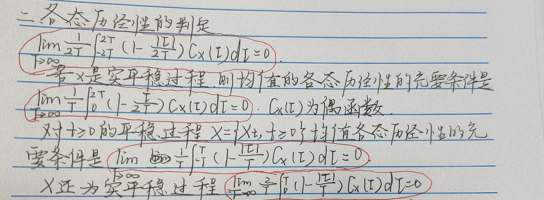 二、各态历经性的判定
lim T→∞ 1/2T ∫_{-2T}^{2T} (1-|τ|/2T) Cx(τ)dτ=0.
若X是实平稳过程,则均值的各态历经性的充要条件是
lim T→∞ 1/T ∫_0^{2T} (1-τ/2T) Cx(τ)dτ=0. Cx(τ)为偶函数.
对t≥0的平稳过程X={Xt,t≥0}均值各态历经性的充
要条件是 lim T→∞ 1/T ∫_{-T}^{T} (1-|τ|/T) Cx(τ)dτ=0.
X还为实平稳过程 lim T→∞ 2/T ∫_0^T (1-|τ|/T) Cx(τ)dτ=0